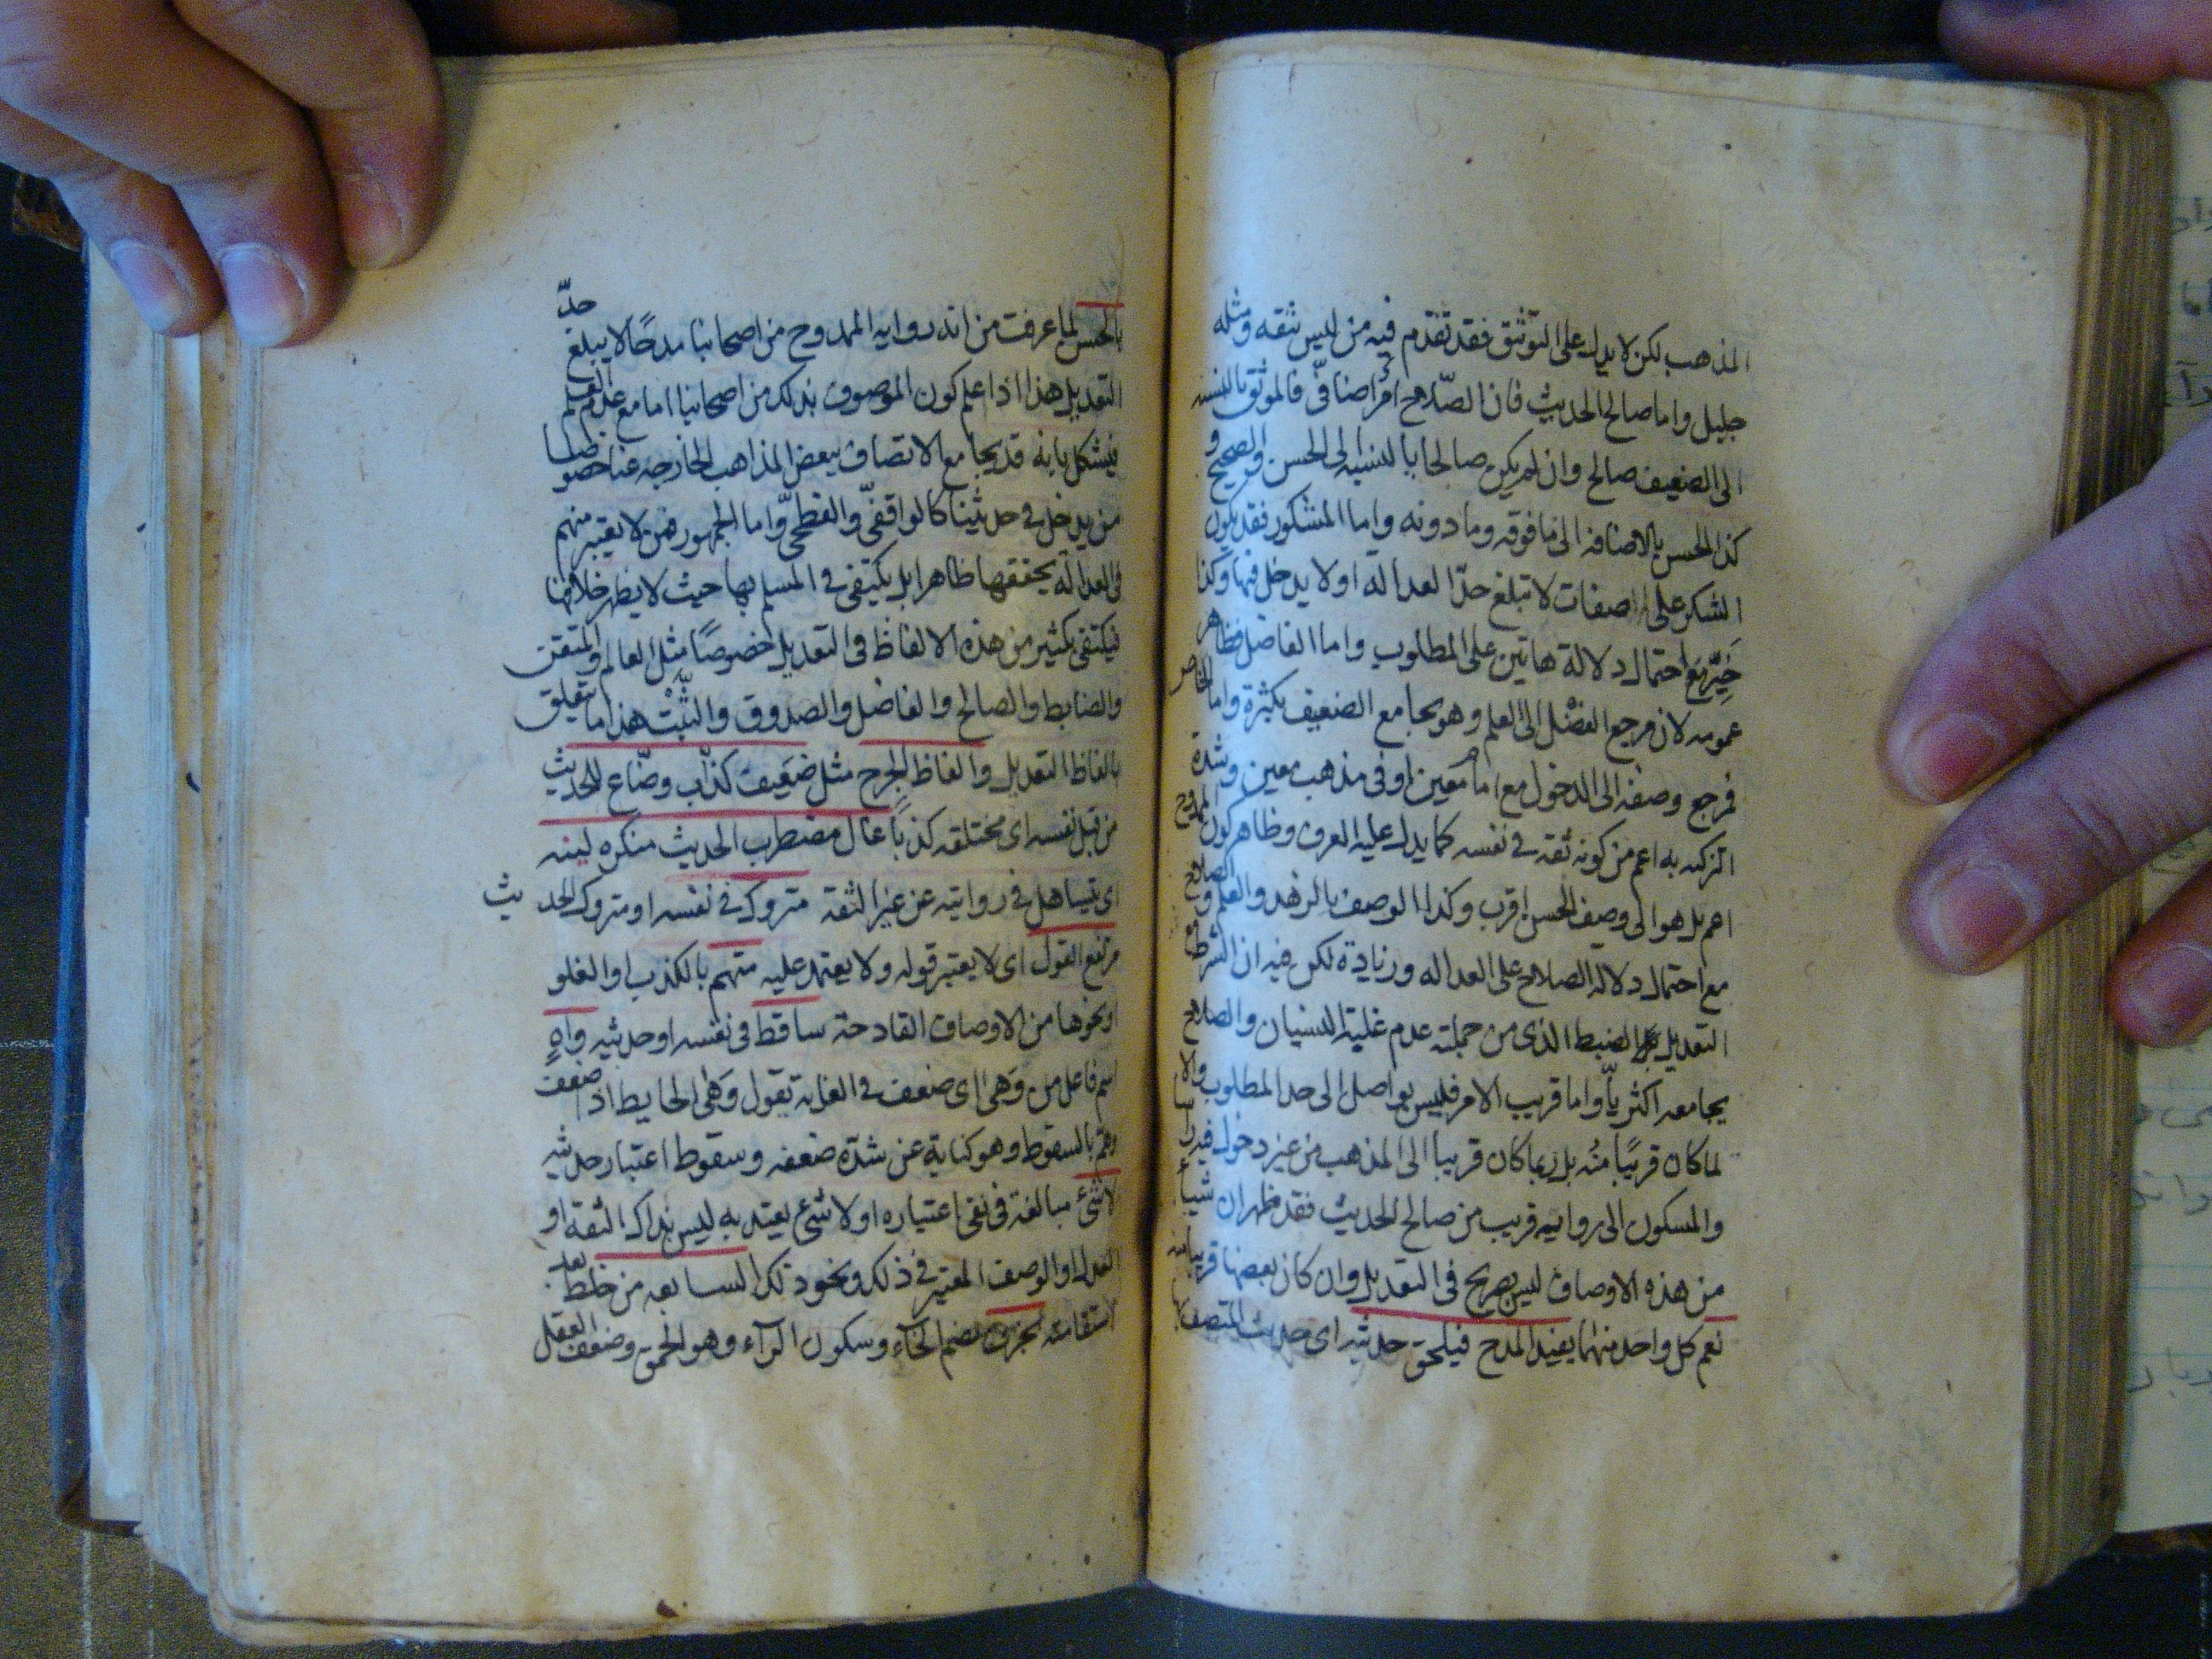 المذهب لكن لا يدل على التوثيق فقد تقدم فيه من ليس بثقه ومثله
جليل واما صالح الحديث فان الصّلاح امر اضافىّ فالموثق بالنسبه
الى الضعيف صالح وان لم يكن صالحا بالنسبه الى الحسن والصحيح و
كذا الحسن بالاضافه الى ما فوقه وما دونه واما المشكور فقد يكون
الشكر على صفات لا تبلغ حدّ العدالة اولا يدخل فيها وكذا
خيّر مع احتمال دلالة هاتين على المطلوب واما الفاضل فظاهر
عمومه لان مرجع الفضْل الى العلم وهو يجامع الضعيف بكثرة واما الخاص
فمرجع وصفه الى الدخول مع امام معين او فى مذهب معين وشدة
التزكيه به اعم من كونه ثقه فى نفسه كما يدل عليه العرف وظاهر كون الممدوح
اعم بل هو الى وصف الحسن اقرب وكذا الوصف بالزهد والعلم والصلاح
مع احتمال دلاله الصلاح على العداله وزيادة لكن فيه ان الشرط فى
التعديل الضبط الذى من جملته عدم غلبة النسيان والصلاح
يجامعه اكثريّا واما قريب الامر فليس بواصل الى حد المطلوب والا
لما كان قريبًا منه بل ربما كان قريبا الى المذهب من غير دخول فيه راسا
والمسكون الى روايته قريب من صالح الحديث فقد ظهر ان شيئا
من هذه الاوصاف ليس بصريح فى التعديل وان كان بعضها قريبا منه
نعم كل واحد منها يفيد المدح فيلحق حديثه اى حديث المتصف
بالحسن لما عرفت من انه رواية الممدوح من اصحابنا مدحًا لا يبلغ حدّ
التعديل هذا اذا علم كون الموصوف بذلك من اصحابنا اما مع عدم العلم
فيشكل بانه قد يجامع الاتصاف ببعض المذاهب الخارجه عنا خصوصا
من يدخل فى حديثنا كالواقفىّ والفطحىّ واما الجمهور فمن لا يعتبر منهم
فى العدالة تحققها ظاهرا بل يكتفى فى المسلم بها حيث لا يظهر خلافها
فيكتفى بكثير من هذه الالفاظ فى التعديل خصوصًا مثل العالم والمتقن
والضابط والصالح والفاضل والصدوق والثبْت هذا ما يتعلق
بالفاظ التعديل والفاظ الجرح مثل ضعيف كذّاب وضّاع للحديث
من قبل نفسه اى مختلقه كذبًا غال مضطرب الحديث منكره لينه
اى يتساهل فى روايته عن غير الثقة متروك فى نفسه او متروك الحديث
مرتفع القول اى لا يعتبر قوله ولا يعتمد عليه متهم بالكذب او الغلو
او نحوها من الاوصاف القادحة ساقط فى نفسه او حديثه واهٍ
اسم فاعل من وَهى اى ضعف فى الغايه تقول وَهى الحايط اذا ضعف
وهمّ بالسقوط وهو كناية عن شدّة ضعفه وسقوط اعتبار حديثه
لا شئ مبالغة فى نفى اعتباره اولا شئ يعتد به ليس بذاك الثقة او
العدل او الوصف المعتبر فى ذلك ونحو ذلك السابعه من خلط بعد
استقامته بخرق بضم الخآء وسكون الرآء وهو الحمق وضعف العقل